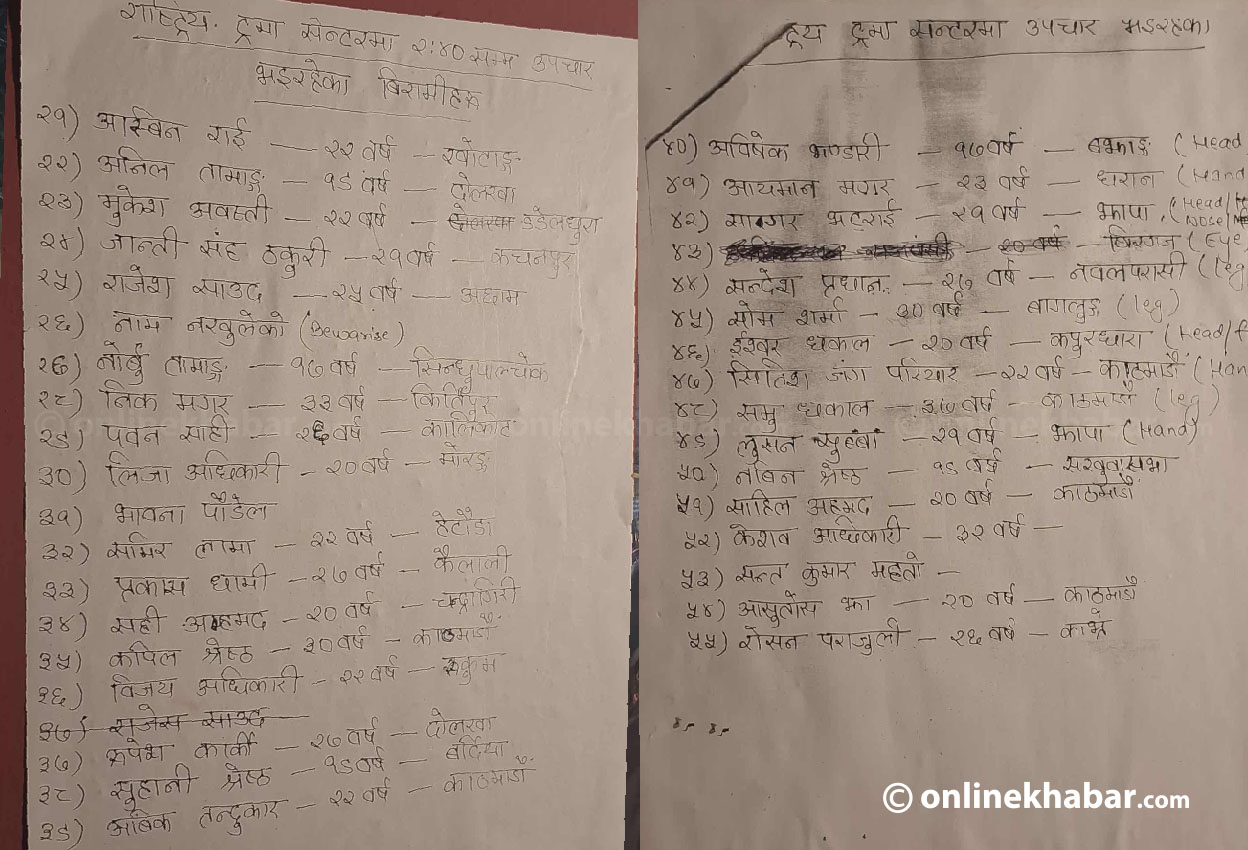 राष्ट्रिय ट्रमा सेन्टरमा २:४० सम्म उपचार
भइरहेका बिरामीहरू
२१) आस्बिन राई — २२ वर्ष — खोटाङ्ग
२२) अनिल तामाङ्ग — १९ वर्ष — दोलखा
२३) मुकेश अवस्ती — २२ वर्ष — डडेलधुरा
२४) जान्ती संह ठकुरी — २१ वर्ष — कंचनपुर
२५) राजेश साउद — २५ वर्ष — अछाम
२६) नाम नखुलेको (Bewarise)
२७) नोर्बु तामाङ्ग — १७ वर्ष — सिन्धुपाल्चोक
२८) निक मगर — ३३ वर्ष — किर्तिपुर
२९) पवन साही — २६ वर्ष — कालिकोट
३०) लिजा अधिकारी — २० वर्ष — मोरङ्ग
३१) भावना पौडेल
३२) समिर लामा — २२ वर्ष — हेटौडा
३३) प्रकास धामी — २७ वर्ष — कैलाली
३४) सही अहमद — २० वर्ष — चन्द्रागिरी
३५) कपिल श्रेष्ठ — ३० वर्ष — काठमाडौं
३६) विजय अधिकारी — २२ वर्ष — रुकुम
३७) राजेस साउद —
३७) रुपेश कार्की — २७ वर्ष — दोलखा
३८) सुहानी श्रेष्ठ — १९ वर्ष — बर्दिया
३९) तन्दुकार — २२ वर्ष — काठमाडौं
ट्रिय ट्रमा सेन्टरमा उपचार भइरहेका
४०) अविषेक भण्डारी — १७ वर्ष — बझाङ्ग (Head
४१) आयमान मगर — २३ वर्ष — धरान (Hand
४२) सागर भट्टराई — २१ वर्ष — झापा (Head/ Nose/
४३) — २० वर्ष — बिरगंज (Eye
४४) सन्देश प्रधान — २७ वर्ष — नवलपरासी (leg
४५) सोम शर्मा — ३० वर्ष — बागलुङ्ग (leg)
४६) ईश्बर ढकाल — २० वर्ष — कपुरधारा (Head/f
४७) जंग परियार — २२ वर्ष — काठमाडौं (Han
४८) समु ढकाल — ३७ वर्ष — काठमाडौं (leg)
४९) लुसन — २१ वर्ष — झापा (Hand)
५०) नबिन श्रेष्ठ — १९ वर्ष — संखुवासभा
५१) साहिल अहमद — २० वर्ष — काठमाडौं
५२) केशव अधिकारी — ३२ वर्ष —
५३) सन्त कुमार महतो —
५४) आसुतोस झा — २० वर्ष — काठमाडौं
५५) रोसन पराजुली — २६ वर्ष — काभ्रे
© onlinekhabar.com